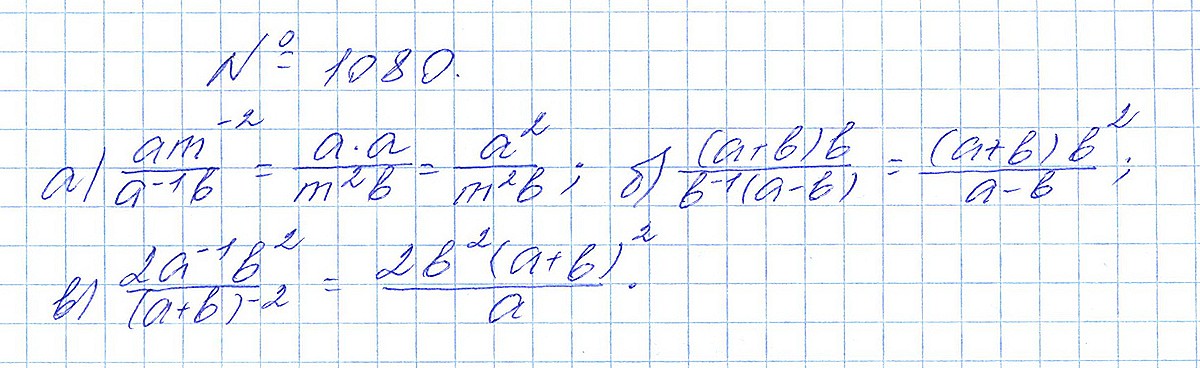 № 1080.
а) \frac{am^{-2}}{a^{-1}b} = \frac{a \cdot a}{m^2b} = \frac{a^2}{m^2b}; б) \frac{(a+b)b}{b^{-1}(a-b)} = \frac{(a+b)b^2}{a-b};
в) \frac{2a^{-1}b^2}{(a+b)^{-2}} = \frac{2b^2(a+b)^2}{a}.